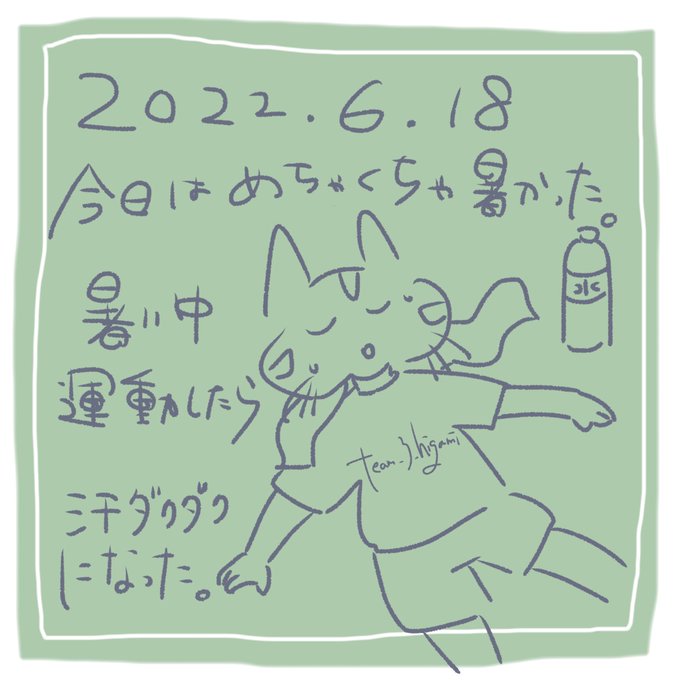 2022.6.18
今日はめちゃくちゃ暑かった。
暑い中
運動したら
汗ダクダク
になった。
水
team_3_higami